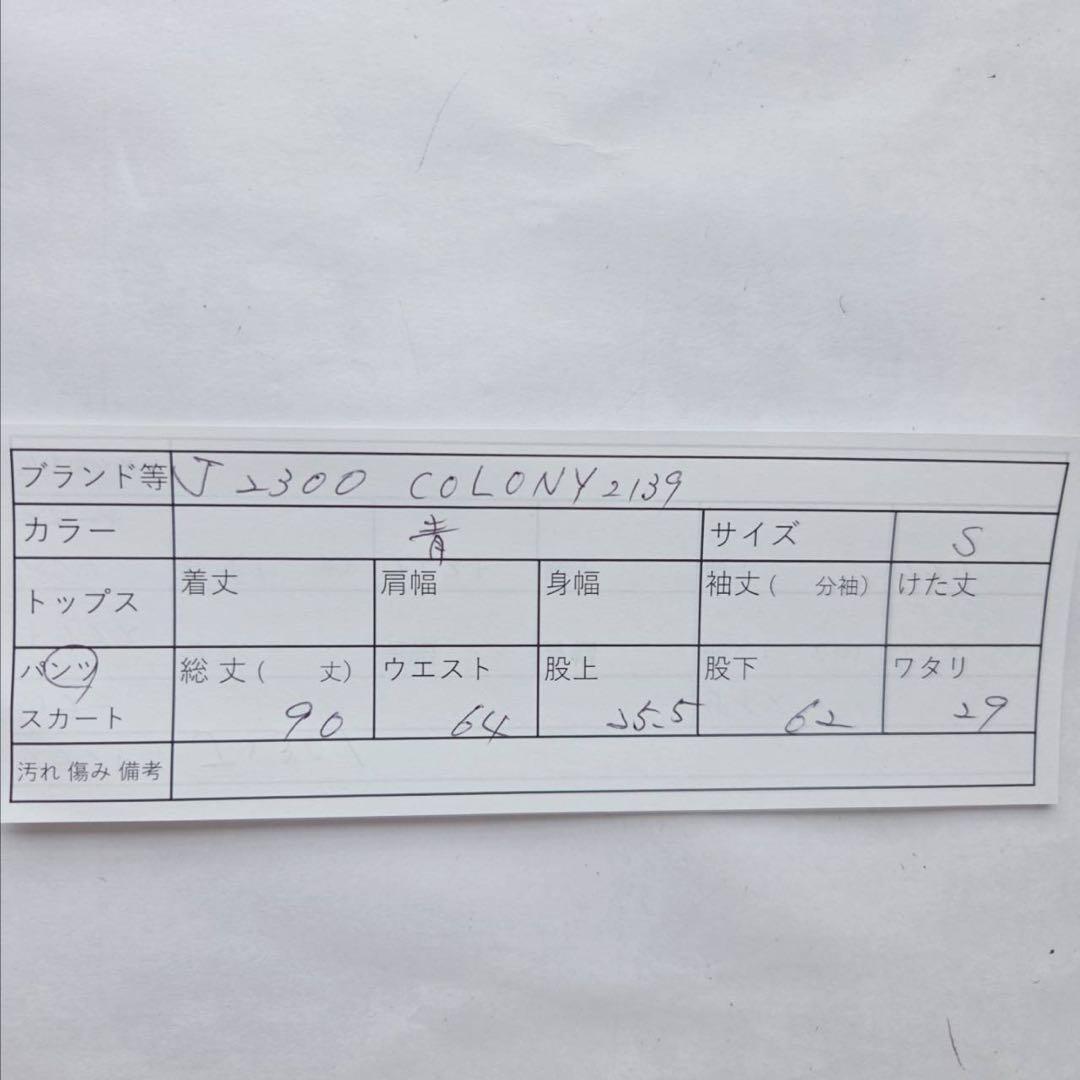 ブランド等 J2300 COLONY 2139
カラー 青 サイズ S
トップス 着丈 肩幅 身幅 袖丈( 分袖) けた丈
パンツ 総丈( 丈) ウエスト 股上 股下 ワタリ
スカート 90 64 25.5 62 29
汚れ 傷み 備考